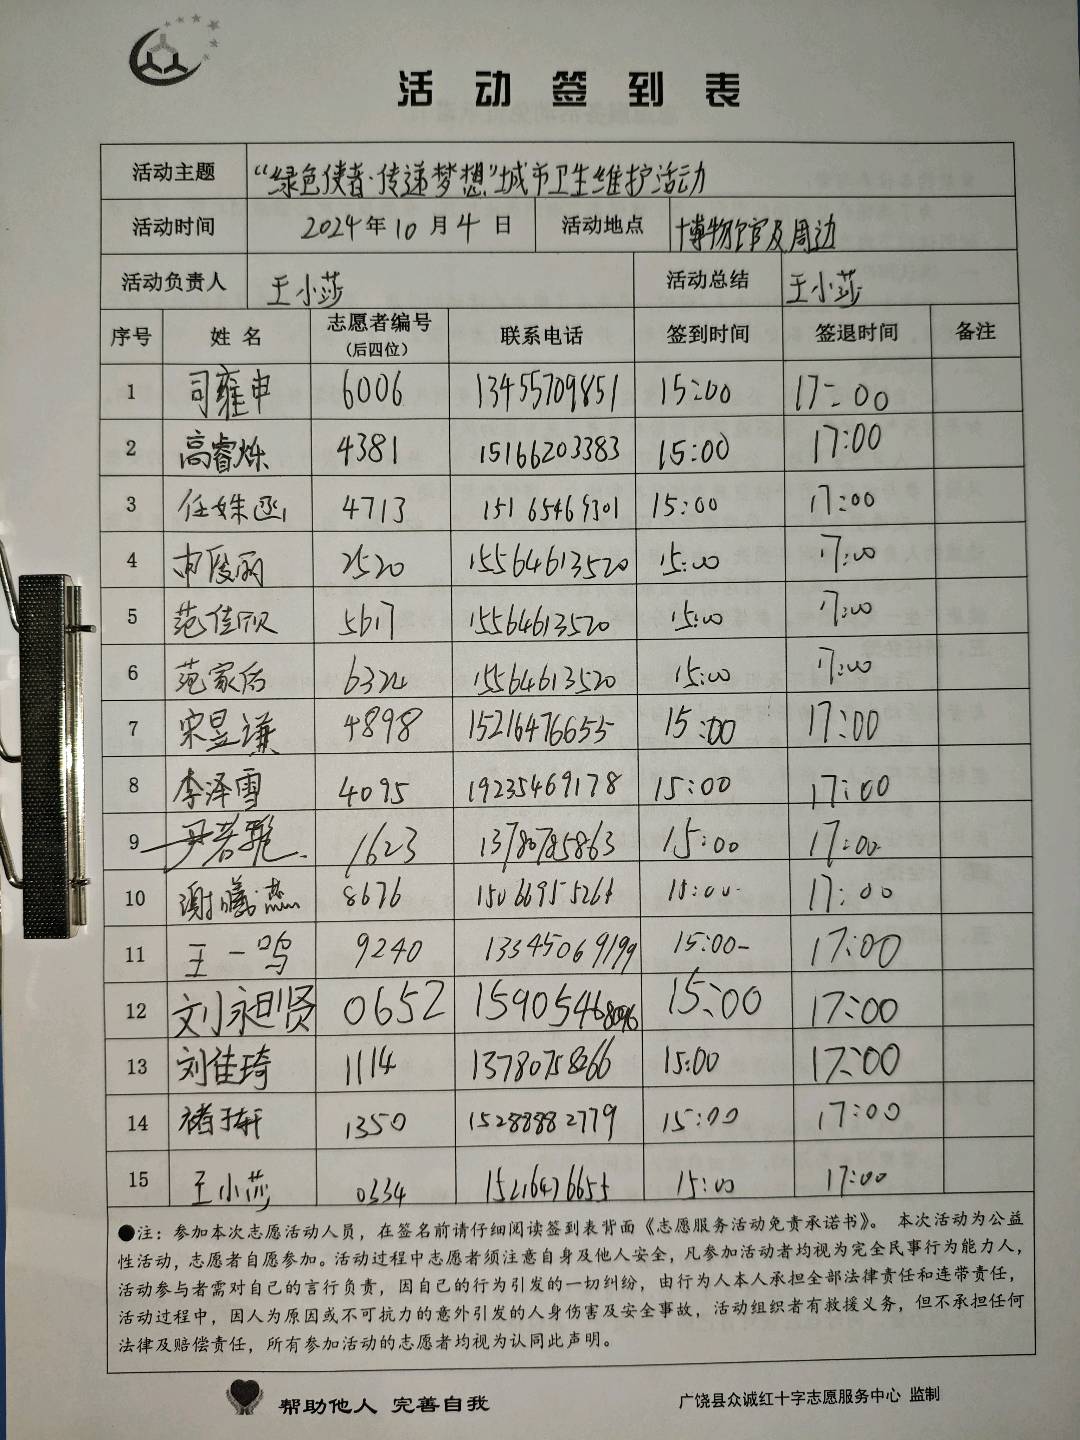 活动签到表
活动主题 “绿色使者·传递梦想”城市卫生维护活动
活动时间 2024年10月4日 活动地点 博物馆及周边
活动负责人 王小莎 活动总结 王小莎
序号 姓名 志愿者编号(后四位) 联系电话 签到时间 签退时间 备注
1 司雍申 6006 13455709851 15:00 17:00
2 高睿烁 4381 15166203383 15:00 17:00
3 任姝函 4713 15165469301 15:00 17:00
4 2520 15564613520 15:00 17:00
5 范佳欣 5617 15564613520 15:00 17:00
6 范家 6324 15564613520 15:00 17:00
7 宋昱谦 4898 15216476655 15:00 17:00
8 李泽雪 4095 19235469178 15:00 17:00
9 尹若雅 1623 13780785863 15:00 17:00
10 谢曦燕 8676 15:00 17:00
11 王一鸣 9240 13345069199 15:00 17:00
12 刘永贤 0652 15905468096 15:00 17:00
13 刘佳琦 1114 13780758266 15:00 17:00
14 褚于轩 1350 15288882779 15:00 17:00
15 王小莎 0334 15216476655 15:00 17:00
●注：参加本次志愿活动人员，在签名前请仔细阅读签到表背面《志愿服务活动免责承诺书》。本次活动为公益
性活动，志愿者自愿参加。活动过程中志愿者须注意自身及他人安全，凡参加活动者均视为完全民事行为能力人，
活动参与者需对自己的言行负责，因自己的行为引发的一切纠纷，由行为人本人承担全部法律责任和连带责任，
活动过程中，因人为原因或不可抗力的意外引发的人身伤害及安全事故，活动组织者有救援义务，但不承担任何
法律及赔偿责任，所有参加活动的志愿者均视为认同此声明。
帮助他人 完善自我 广饶县众诚红十字志愿服务中心 监制